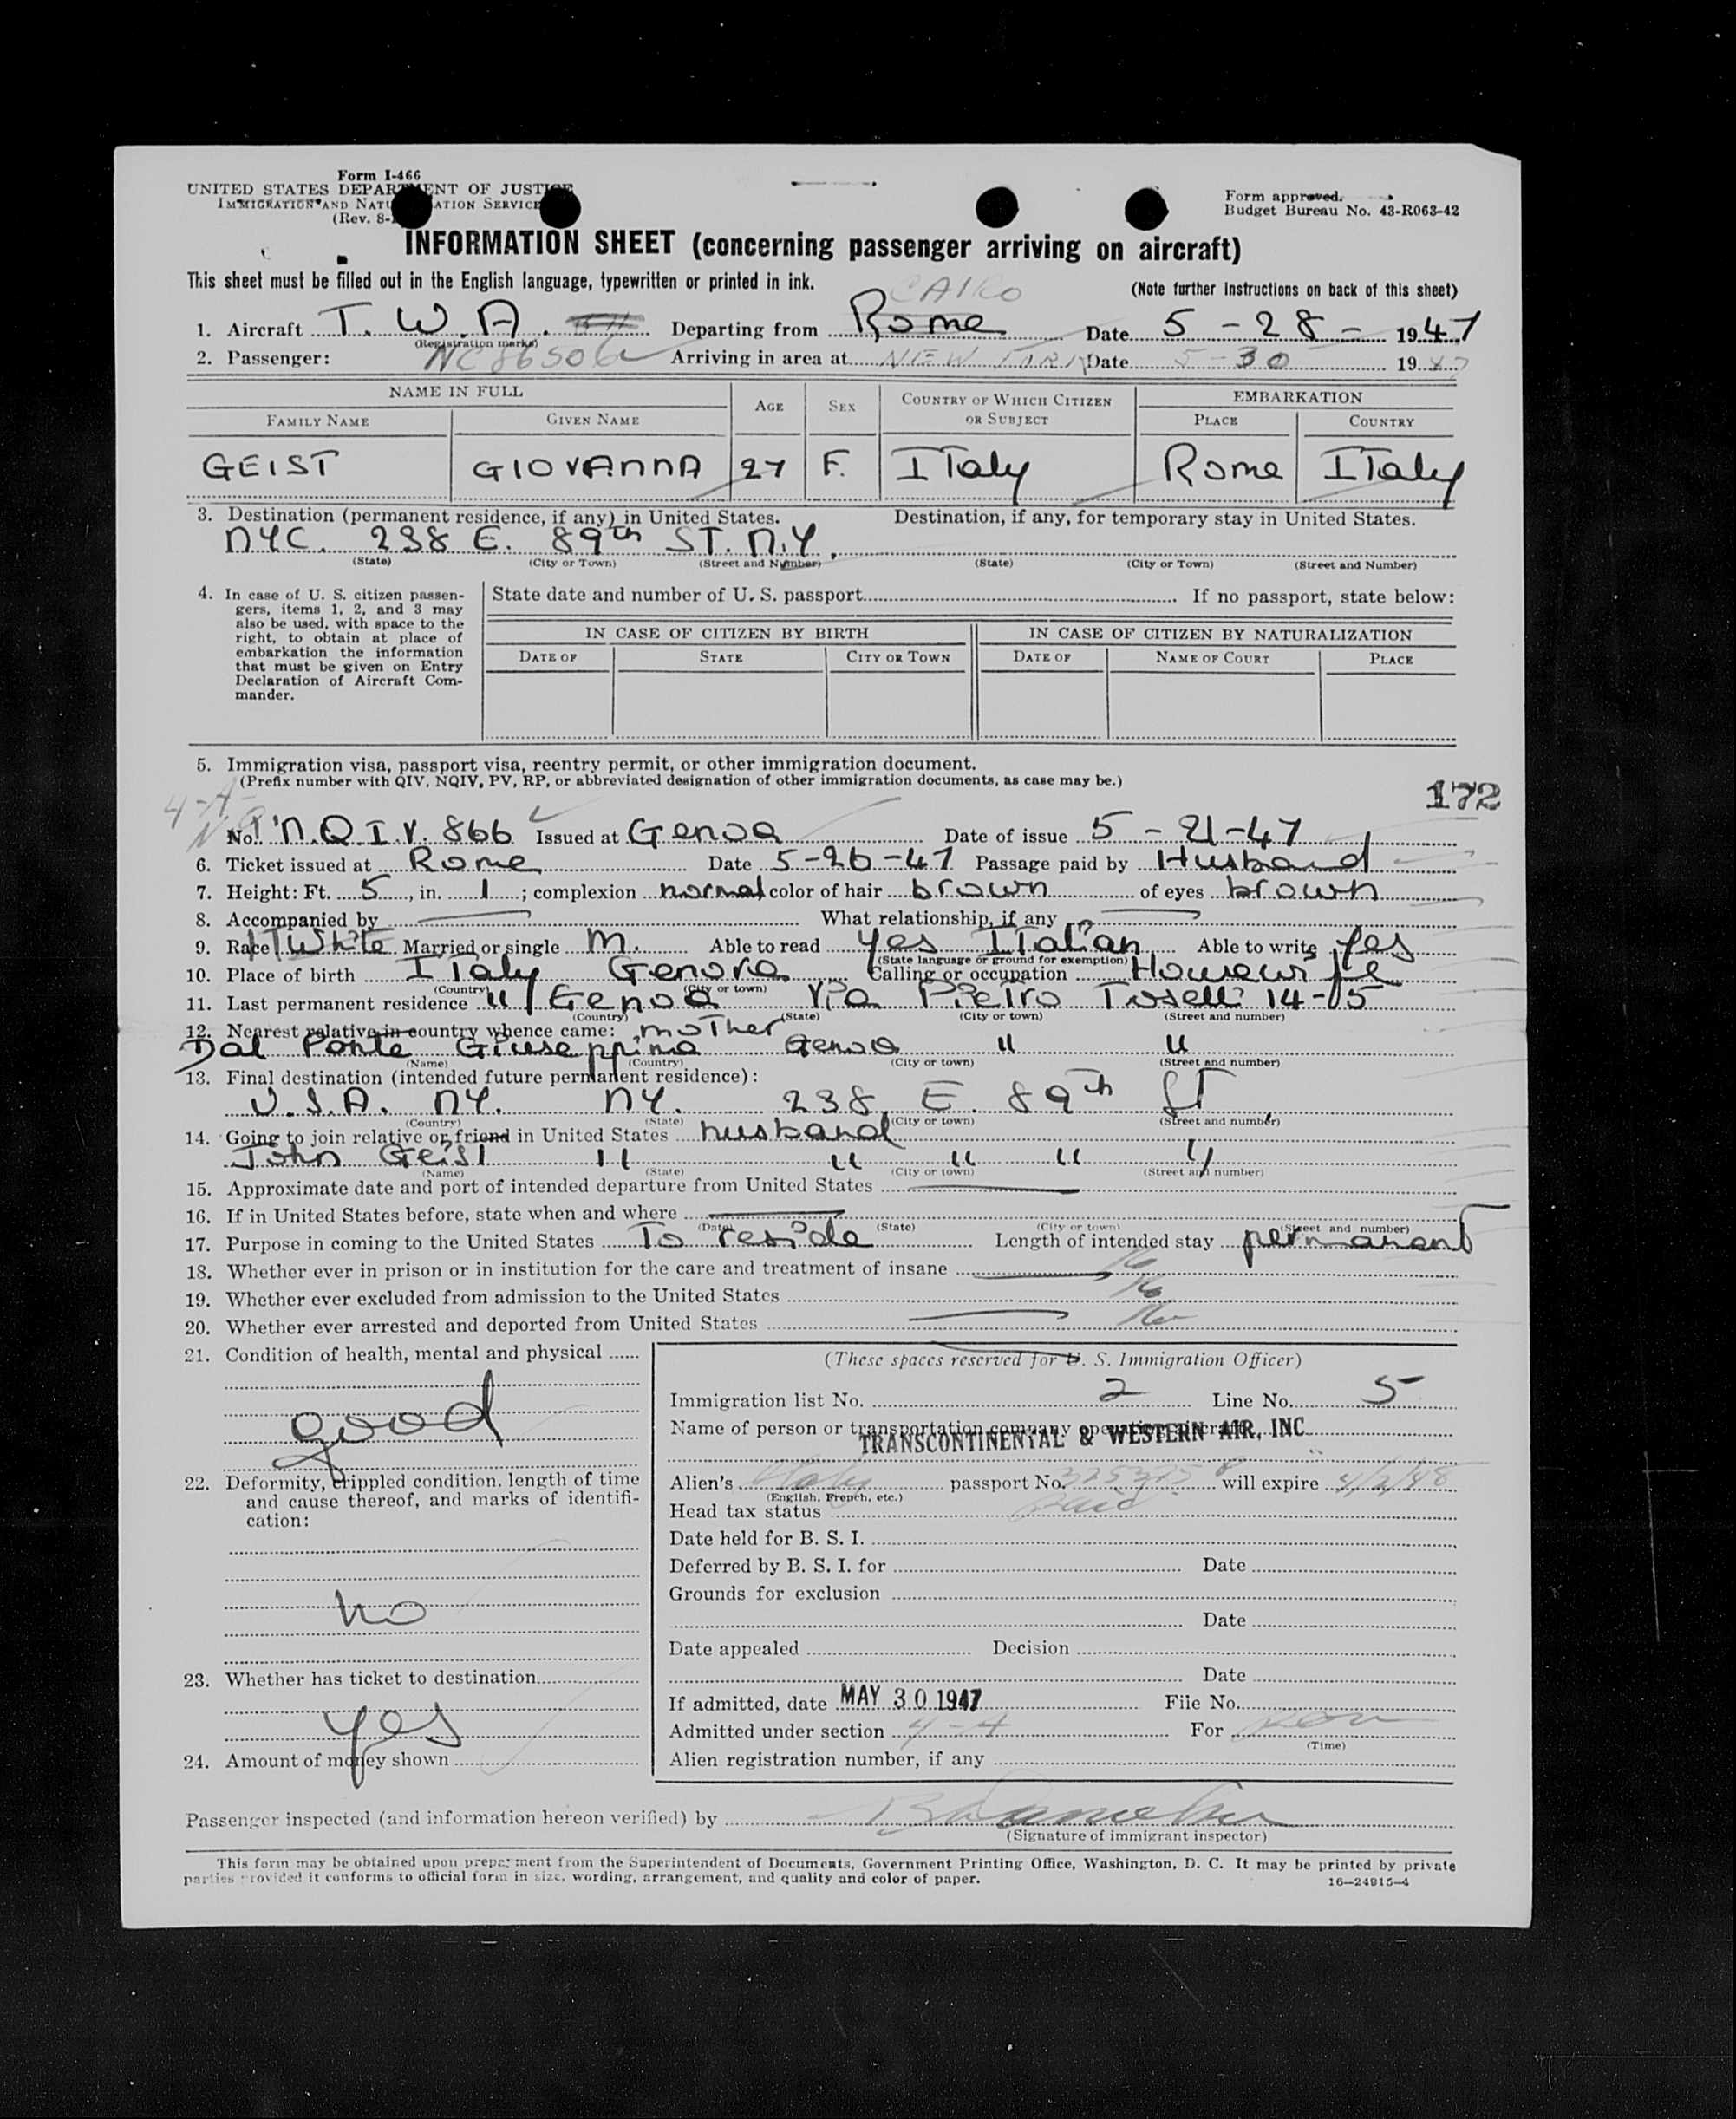 Form I-466
UNITED STATES DEPARTMENT OF JUSTICE
IMMIGRATION AND NATURALIZATION SERVICE
(Rev. 8-
Form approved.
Budget Bureau No. 43-R063-42
INFORMATION SHEET (concerning passenger arriving on aircraft)
This sheet must be filled out in the English language, typewritten or printed in ink.
(Note further instructions on back of this sheet)
CAIRO
1. Aircraft T. W. A. Departing from Rome Date 5-28- 1947
(Registration marks)
2. Passenger: NC86506 Arriving in area at NEW YORK Date 5-30 1947
NAME IN FULL AGE SEX COUNTRY OF WHICH CITIZEN OR SUBJECT EMBARKATION
FAMILY NAME GIVEN NAME PLACE COUNTRY
GEIST GIOVANNA 27 F. ITaly Rome ITaly
3. Destination (permanent residence, if any) in United States. Destination, if any, for temporary stay in United States.
NYC. 238 E. 89th ST. N.Y.
(State) (City or Town) (Street and Number) (State) (City or Town) (Street and Number)
4. In case of U. S. citizen passen-
gers, items 1, 2, and 3 may
also be used, with space to the
right, to obtain at place of
embarkation the information
that must be given on Entry
Declaration of Aircraft Com-
mander.
State date and number of U. S. passport If no passport, state below:
IN CASE OF CITIZEN BY BIRTH IN CASE OF CITIZEN BY NATURALIZATION
DATE OF STATE CITY OR TOWN DATE OF NAME OF COURT PLACE
5. Immigration visa, passport visa, reentry permit, or other immigration document.
(Prefix number with QIV, NQIV, PV, RP, or abbreviated designation of other immigration documents, as case may be.)
172
4-A
No. N.Q.I.V. 866 Issued at Genoa Date of issue 5-21-47
6. Ticket issued at Rome Date 5-26-47 Passage paid by Husband
7. Height: Ft. 5, in. 1; complexion normal color of hair brown of eyes brown
8. Accompanied by What relationship, if any
9. Race White Married or single M. Able to read yes ITalian Able to write yes
(State language or ground for exemption)
10. Place of birth ITaly Genova Calling or occupation Housewife
(Country) (City or town)
11. Last permanent residence " Genoa Via Pietro Toselli 14-5
(Country) (State) (City or town) (Street and number)
12. Nearest relative in country whence came: moTher
Dal Ponte Giuseppina Genoa " "
(Name) (Country) (City or town) (Street and number)
13. Final destination (intended future permanent residence):
U.S.A. NY. NY. 238 E. 89th ST.
(Country) (State) (City or town) (Street and number)
14. Going to join relative or friend in United States husband
John Geist " " " " "
(Name) (State) (City or town) (Street and number)
15. Approximate date and port of intended departure from United States
16. If in United States before, state when and where
(Date) (State) (City or town) (Street and number)
17. Purpose in coming to the United States To reside Length of intended stay permanent
18. Whether ever in prison or in institution for the care and treatment of insane No
19. Whether ever excluded from admission to the United States No
20. Whether ever arrested and deported from United States No
21. Condition of health, mental and physical
good
22. Deformity, crippled condition. length of time
and cause thereof, and marks of identifi-
cation:
no
23. Whether has ticket to destination
yes
24. Amount of money shown
(These spaces reserved for U. S. Immigration Officer)
Immigration list No. 2 Line No. 5
Name of person or transportation company operating aircraft
TRANSCONTINENTAL & WESTERN AIR, INC
Alien's Italy passport No. will expire 4/2/48
(English, French, etc.)
Head tax status Paid
Date held for B. S. I.
Deferred by B. S. I. for Date
Grounds for exclusion
Date
Date appealed Decision
Date
If admitted, date MAY 30 1947 File No.
Admitted under section 4-A For
(Time)
Alien registration number, if any
Passenger inspected (and information hereon verified) by
(Signature of immigrant inspector)
This form may be obtained upon prepayment from the Superintendent of Documents, Government Printing Office, Washington, D. C. It may be printed by private
parties provided it conforms to official form in size, wording, arrangement, and quality and color of paper.
16—24915-4